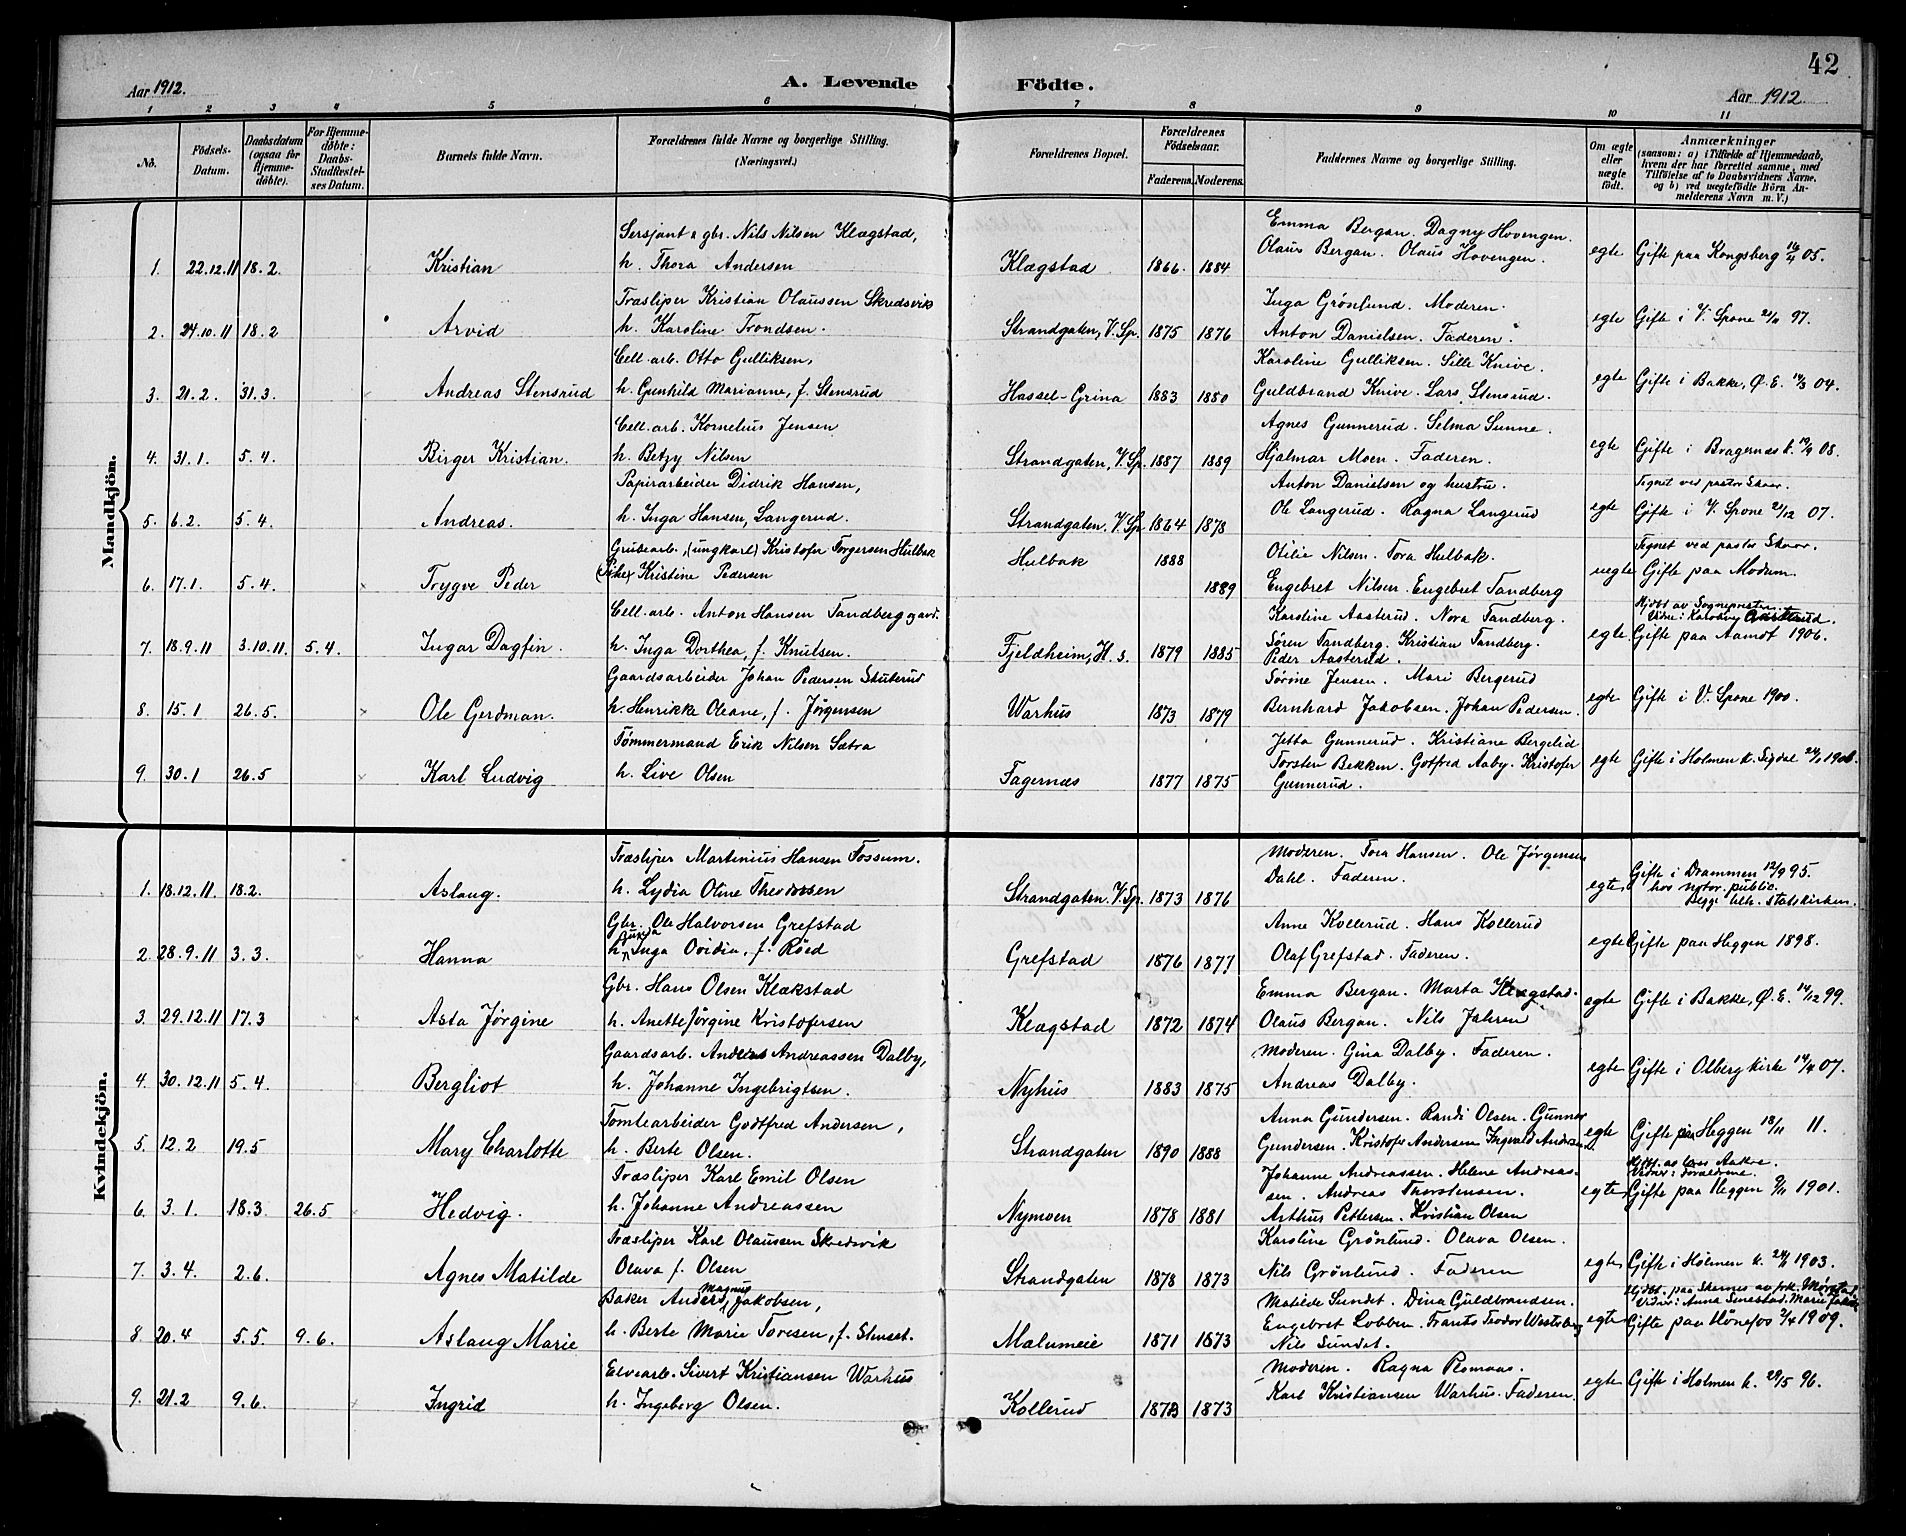 42
Aar 1912.
A. Levende Födte.
Aar 1912
1 2 3 4 5 6 7 8 9 10 11
No.
Födsels-Datum.
Daabsdatum (ogsaa for Hjemme-döbte).
For Hjemme-döbte: Daabs-Stadfestel-ses Datum.
Barnets fulde Navn.
Forældrenes fulde Navne og borgerlige Stilling. (Næringsvei.)
Forældrenes Bopæl.
Forældrenes Födselsaar.
Faderens. Moderens.
Faddernes Navne og borgerlige Stilling.
Om ægte eller uægte födt.
Anmærkninger (saasom: a) i Tilfælde af Hjemmedaab, hvem der har forrettet samme, med Tilföielse af to Daabsvidners Navne, og b) ved uægtefödte Börn An-melderens Navn m. V.)
Mandkjön.
Sersjant & gbr. Nils Nilsen Klægstad, Emma Bergan. Dagny Hovengen.
1. 22.12.11 18.2. Kristian h. Thora Andersen Klægstad 1866. 1884 Olaus Bergan. Olaus Hovengen. egte Gifte paa Kongsberg 05.
Træsliper Kristian Olaussen Skredsvik Inga Grönlund. Moderen.
2. 24.10.11 18.2 Arvid h. Karoline Trondsen. Strandgaten, V. Sp. 1875 1876 Anton Danielsen. Faderen. egte Gifte i V. Spone 2/11 97.
Cell. arb. Otto Gulliksen, Karoline Gulliksen. Sille Knive.
3. 21.2. 31.3. Andreas Stensrud h. Gunhild Marianne, f. Stensrud Hassel-Grina 1883 1880 Guldbrand Knive. Lars Stensrud. egte Gifte i Bakke, Ø. E. 04.
Cell. arb. Kornelius Jensen Agnes Gunnerud. Selma Sunne.
4. 31.1. 5.4. Birger Kristian. h. Betzy Nilsen Strandgaten, V. Sp. 1887 1889 Hjalmar Moen. Faderen. egte Gifte i Bragernæs k. 08.
Papirarbeider Didrik Hansen, Anton Danielsen og hustru. Tegnet ved pastor Skaar.
5. 6.2. 5.4. Andreas. h. Inga Hansen, Langerud. Strandgaten. V. Sp 1864 1878 Ole Langerud. Ragna Langerud egte Gifte i V. Spone 2/12 07.
Grubearb., (ungkarl) Kristofer Torgersen Hulbak Hulbak 1888 Otilie Nilsen. Tora Hulbak. Tegnet ved pastor Skaar.
6. 17.1. 5.4. Trygve Peder Pike Kristine Pedersen 1889 Engebret Nilsen. Engebret Tandberg uegte Gifte paa Modum.
Cell. arb. Anton Hansen Tandberg Karoline Aasterud. Nora Tandberg. Hjdbt av Sognepresten.
7. 18.9.11 3.10.11 5.4. Ingar Dagfin. h. Inga Dorthea, f. Knutsen. Fjeldheim, H. s. 1879 1885 Sören Tandberg. Kristian Tandberg. Peder Aasterud. egte Gifte paa Aamot 1906.
Gaardsarbeider Johan Pedersen Skuterud Sörine Jensen. Mari Bergerud
8. 15.1 26.5. Ole Gerdman. h. Henrikke Oleane, f. Jörgensen Warhus 1873 1879 Bernhard Jakobsen. Johan Pedersen. egte Gifte i V. Spone 1900.
Tömmermand Erik Nilsen Sætra Jetta Gunnerud. Kristiane Bergelid
9. 30.1 26.5 Karl Ludvig h. Live Olsen Fagernæs 1877 1875 Torsten Bekken. Gotfred Aaby. Kristofer Gunnerud. egte Gifte i Holmen k. Sigdal
Kvindekjön.
Træsliper Martinius Hansen Fossum. Moderen. Tora Hansen. Ole Jörgensen
1. 18.12.11. 18.2. Aslaug. h. Lydia Oline Theodorsen Strandgaten. V. Sp. 1873 1876 Dahl. Faderen. egte Gifte i Drammen 12/9 95. hos notar. public. Begge utbr. statskirken.
Gbr. Ole Halvorsen Grefstad Anne Kollerud. Hans Kollerud
2. 28.9.11 3.3. Hanna h. Inga Ovidia, f. Röed Grefstad 1876 1877 Olaf Grefstad. Faderen. egte Gifte paa Heggen 1898.
Gbr. Hans Olsen Klækstad Emma Bergan. Marta Klægstad.
3. 29.12.11 17.3 Asta Jörgine h. Anette Jörgine Kristofersen Klægstad 1872 1874 Olaus Bergan. Nils Jahren egte Gifte i Bakke, Ø. E. 14/12 99.
Gaardsarb. Andreas Andreassen Dalby, Moderen. Gina Dalby. Faderen.
4. 30.12.11 5.4. Bergliot h. Johanne Ingebrigtsen. Nyhus 1883 1875 Andreas Dalby. egte Gifte i Olberg kirke 14/4 07.
Tomtearbeider Godtfred Andersen, Anna Gundersen. Randi Olsen. Gunnar
5. 12.2 19.5 Mary Charlotte h. Berte Olsen. Strandgaten 1890 1888 Gundersen. Kristofer Andersen Ingvald Andersen. egte Gifte paa Heggen 18/11 11.
Træsliper Karl Emil Olsen Johanne Andreassen. Helene Andreas-sen. Andreas Thorstensen. Hjdbt. av Lars Aakre. Vidner: Forældrene.
6. 3.1. 18.3 26.5 Hedvig. h. Johanne Andreassen Nymoen 1878 1881 Arthur Pettersen. Kristian Olsen egte Gifte paa Heggen 9/11 1901.
Træsliper Karl Olaussen Skredsvik Karoline Grönlund. Olava Olsen.
7. 3.4. 2.6. Agnes Matilde Olava f. Olsen Strandgaten 1878 1873 Nils Grönlund. Faderen egte Gifte i Holmen k. 1903.
Baker Anders Magnus Jakobsen, Matilde Sundet. Dina Guldbrandsen. Hjdbt. paa Skarnes av frk. Mørstad. Vidner: Anna Senestad. Marie
8. 20.4 5.5 9.6. Aslaug Marie h. Berte Marie Toresen, f. Stenset. Malumeie 1871 1873 Engebret Lobben. Frants Teodor Westeberg Nils Sundet. egte Gifte paa Hönefos 2/4 1909.
Elvearb. Sivert Kristiansen Warhus Moderen. Ragna Plomaas.
9. 21.2 9.6. Ingrid h. Ingeborg Olsen. Kollerud 1873 1873 Karl Kristiansen Warhus. Faderen. egte Gifte i Holmen k. 29/5 96.